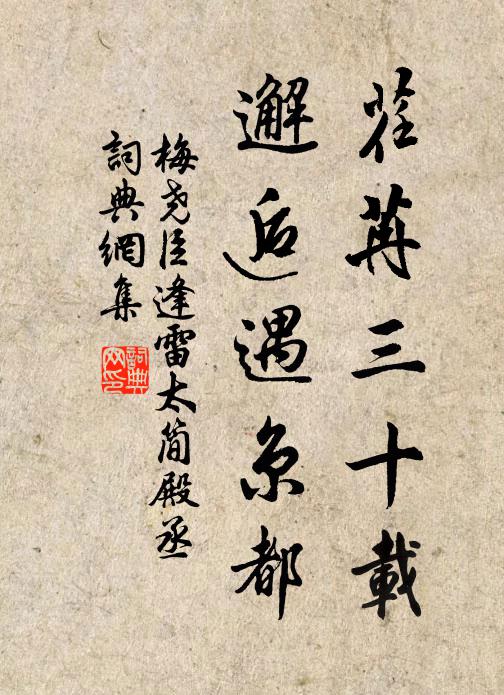 荏苒三十載
邂逅遇京都
梅尧臣逢雷太簡殿丞
詞典網集
詞典网印